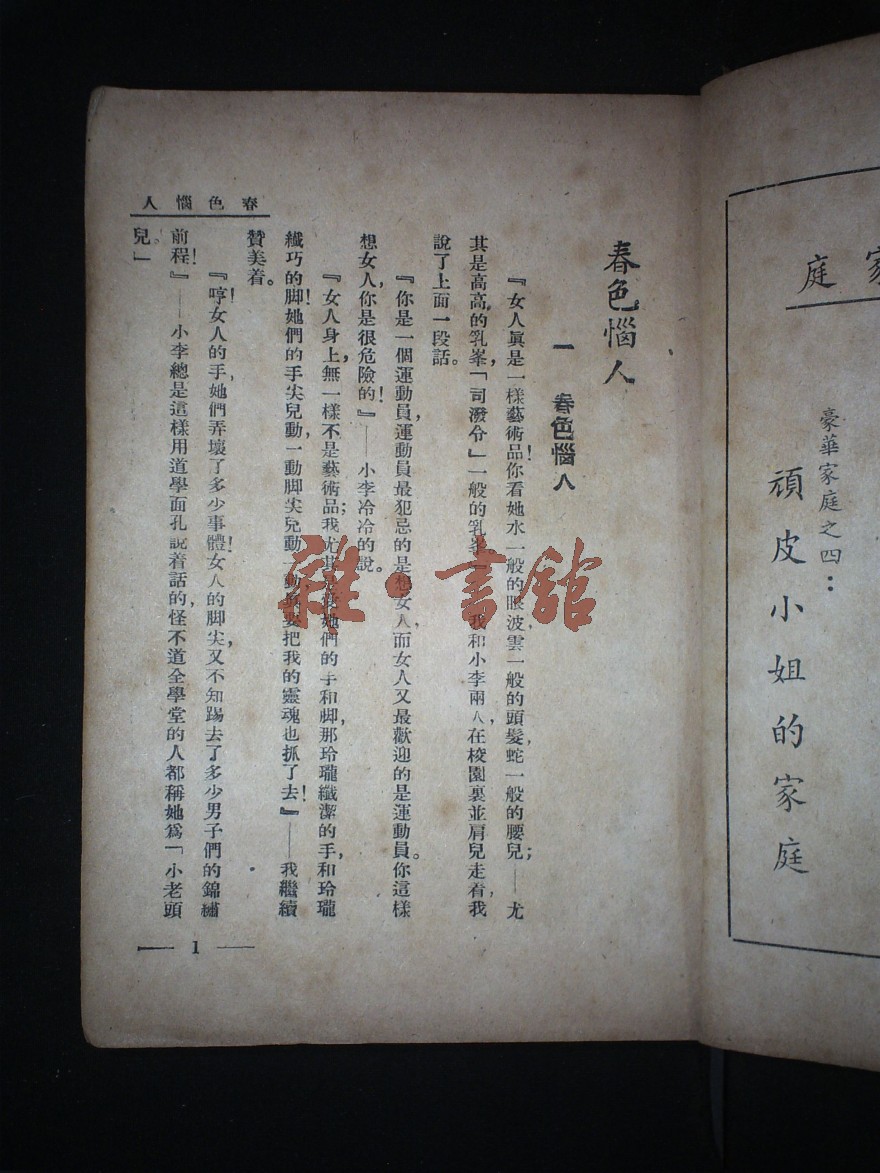 家庭
豪華家庭之四：
頑皮小姐的家庭
春色惱人
春色惱人
一　春色惱人
『女人眞是一樣藝術品！你看她水一般的眼波，雲一般的頭髮，蛇一般的腰兒；——尤
其是高高的乳峯，「司潑令」一般的乳峯』我和小李兩人在校園裏並肩兒走着，我
說了上面一段話。
『你是一個運動員，運動員最犯忌的是想女人，而女人又最歡迎的是運動員。你這樣
想女人，你是很危險的！』——小李冷冷的說。
『女人身上，無一樣不是藝術品；我尤其是愛她們的手和脚，那玲瓏纖潔的手，和玲瓏
纖巧的脚！她們的手尖兒動一動，脚尖兒動一動，眞要把我的靈魂也抓了去！』——我繼續
贊美着。
『哼！女人的手，她們弄壞了多少事體！女人的脚尖，又不知踢去了多少男子們的錦繡
前程！』——小李總是這樣用道學面孔說着話的，怪不道全學堂的人都稱她爲「小老頭
兒。」
— 1 —
雜·書館